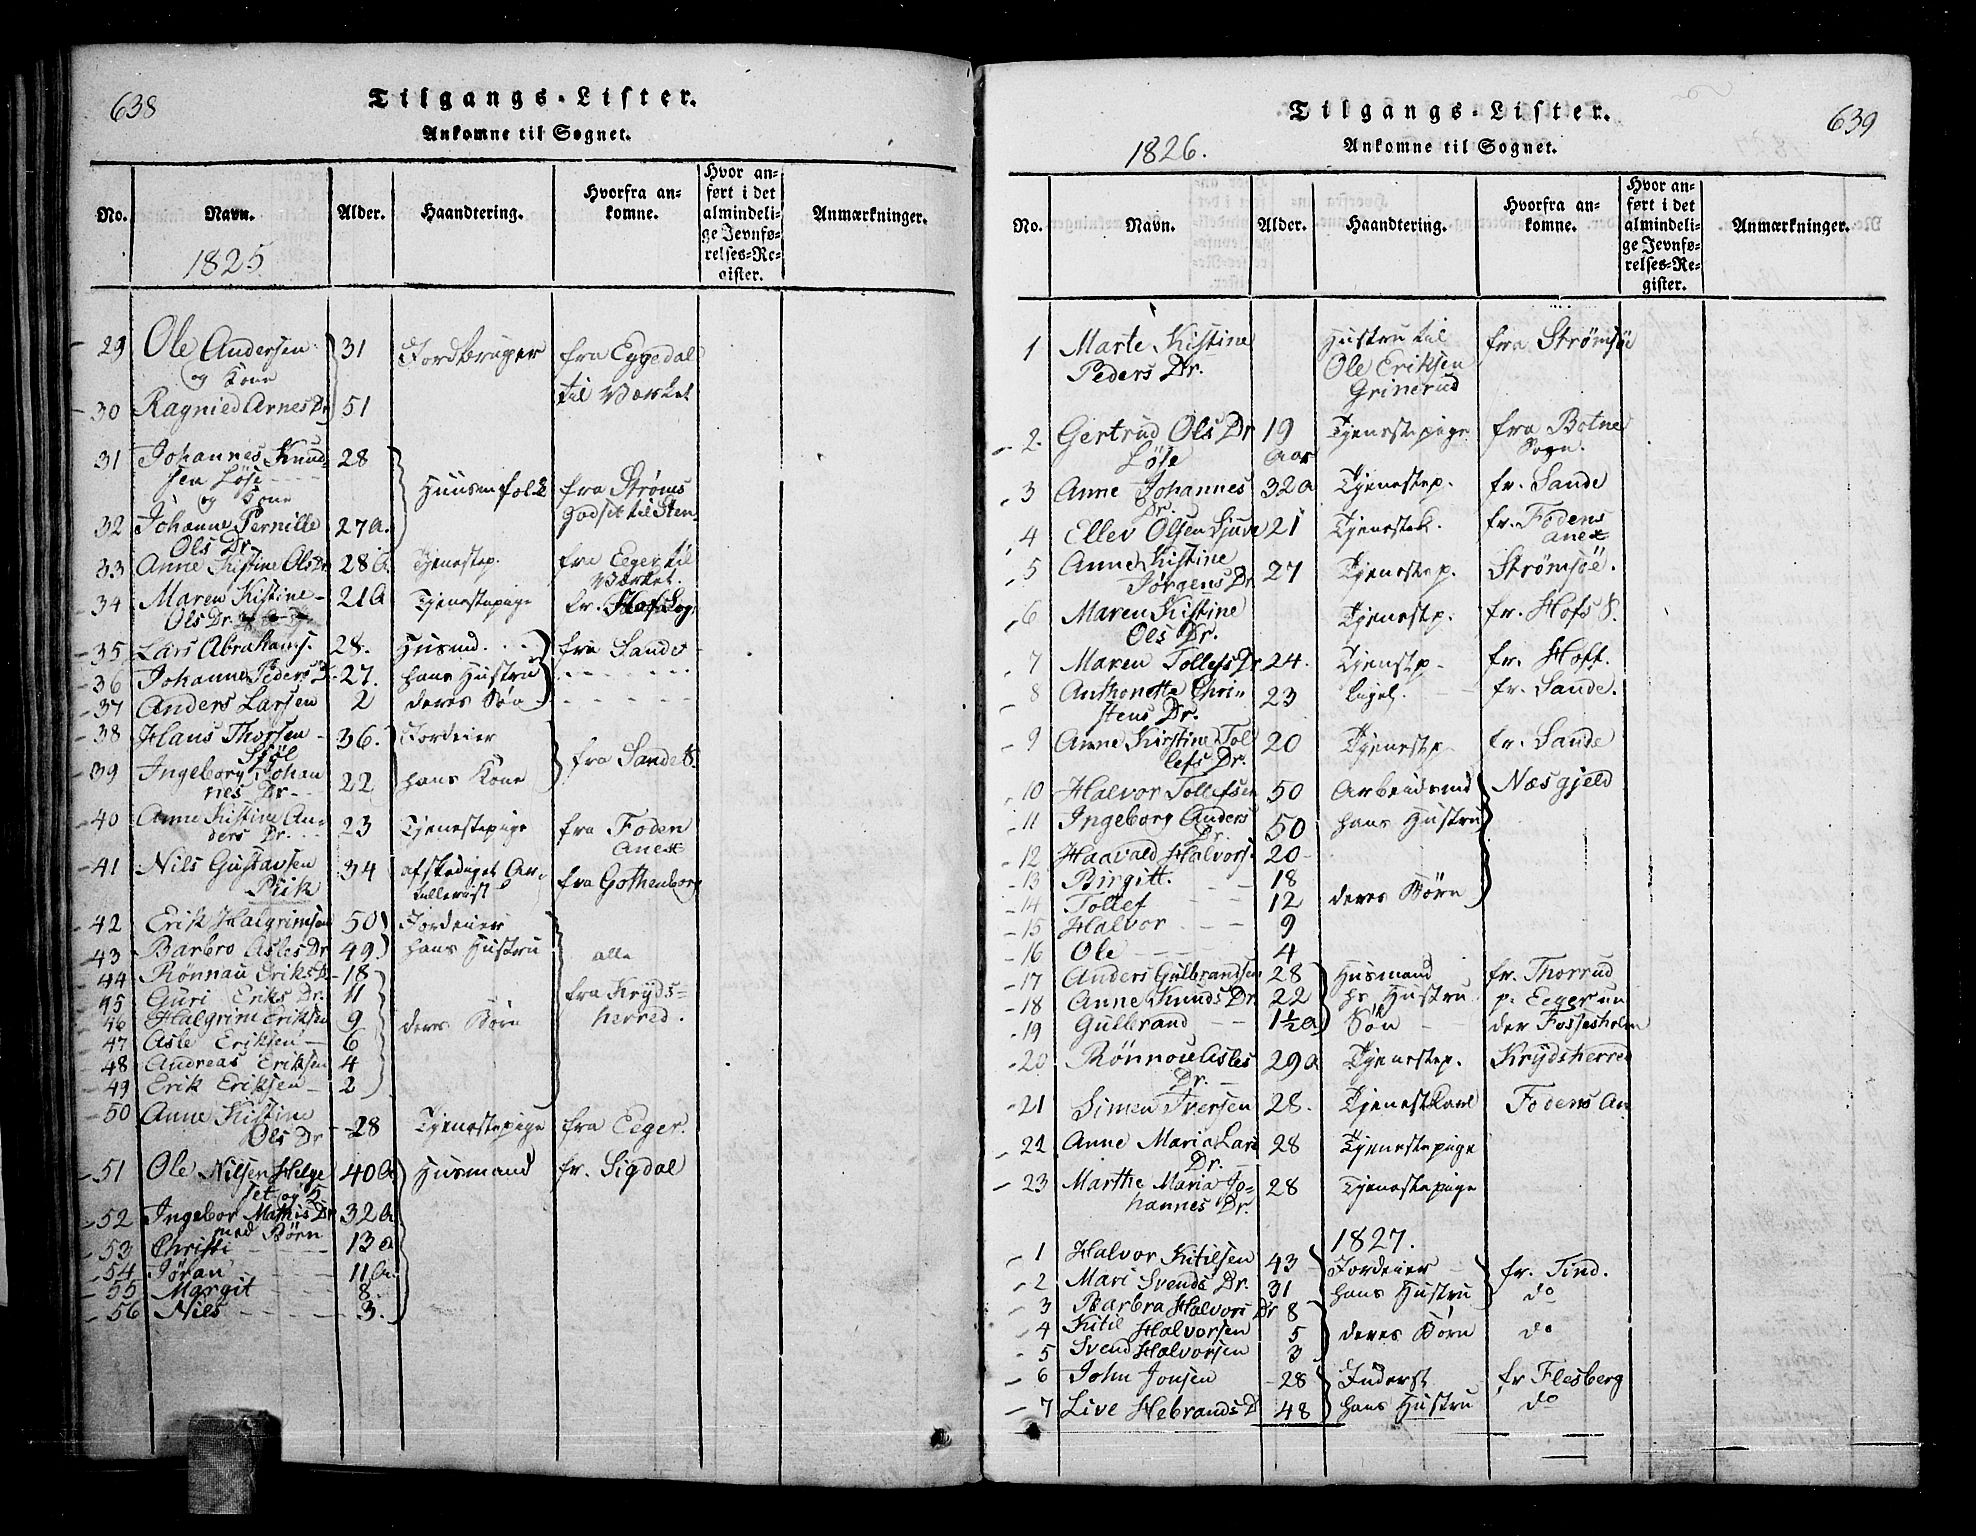 638
Tilgangs-Lister.
Ankomne til Sognet.
No. Navn. Alder. Haandtering. Hvorfra ankomne. Hvor anført i det almindelige Jevnførelses-Register. Anmærkninger.
1825
29 Ole Andersen 31 Jordbruger fra Eggedal
og Kone til Værket
30 Ragnied Arnes Dr 51
31 Johannes Knud- 28
sen Löse Huusmfolk fra Ströms
og Kone Godset til Sten-
32 Johanne Pernille 27 a.
Ols Dr.
33 Anne Kistine Ols Dr 28 a. Tjenestep. fra Eeger til
Værket.
34 Maren Kistine 21 a Tjenestepige fr. Hofs Sog
Ols Dr.
35 Lars Abrahams. 28. Husmd. fra Sande
36 Johanne Peders Dr. 27. hans Hustru
37 Anders Larsen 2 deres Søn
38 Hans Thorsen 36. Jordeier
39 Ingeborg Johan 22 hans Kone fra Sande S.
nes Dr
40 Anne Kistine An- 23 Tjenestepige fra Foden
ders Dr. Anex
41 Nils Gustavsen 34 afskediget Ar- fra Gothenborg
Pük tillerist
42 Erik Halgrimsen 50 Jordeier
43 Barbro Asles Dr 49 hans Hustru alle
44 Rönnau Eriks Dr 18
45 Guri Eriks Dr. 11 fra Kryds-
46 Halgrim Eriksen 9 deres Børn herred.
47 Asle Eriksen 6
48 Andreas Eriksen 4
49 Erik Eriksen 2
50 Anne Kistine
Ols Dr 28 Tjenestepige fra Eeger.
51 Ole Nilsen Helge 40 a Husmand fr. Sigdal
set og
52 Ingebor Mathis Dr 32 a
med Børn
53 Christi 13 a
54 Jöran 11 a.
55 Margit 8.
56 Nils 3.
639
Tilgangs-Lister.
1826. Ankomne til Sognet.
No. Navn. Alder. Haandtering. Hvorfra ankomne. Hvor anført i det almindelige Jevnførelses-Register. Anmærkninger.
1 Marte Kistine Hustru til fra Strömsöe
Peders Dr. Ole Eriksen
Grinerud
2. Gertrud Ols Dr 19 Tjenestepige fra Botne
Löse Aar Sogn.
3 Anne Johannes 32 a Tjenestep. fr. Sande
Dr.
4 Ellev Olsen Ljuve 21 Tjenestek. fr. Fodens
anex
5 Anne Kistine
Jörgens Dr 27 Tjenestep. Strömsöe.
6 Maren Kistine Tjenestp. fr. Hofs S.
Ols Dr.
7 Maren Tollefs Dr 24. Tjenstp fr. Hoff.
8 Anthonette Chri- 23 Ligel. fr. Sande.
stens Dr.
9 Anne Kirstine Tol 20 Tjenestp fr. Sande
lefs Dr.
10 Halvor Tollefsen 50 Arbeidsmd Næsgjeld
11 Ingeborg Anders 50 hans Hustru
Dr.
12 Haavald Halvors. 20
13 Birgitt. 18
14 Tollef 12 deres Børn
15 Halvor 9
16 Ole 4
17 Anders Gulbrandsen 28 Husmand fr. Thorrud
18 Anne Knuds Dr 22 hs. Hustru p. Eeger un
19 Gulbrand 1½ a Søn der Fossesholm
20 Rönnou Asles 29 a Tjenestep. Krydsherred
Dr.
21 Simen Iversen 28. Tjenestkarl Fodens An
22 Anne Maria Lars 28 Tjenestepige
Dr.
23 Marthe Maria Jo- 28 Tjenestepige
hannes Dr.
1827.
1 Halvor Kitilsen 43 Jordeier fr. Tind.
2 Mari Svends Dr. 31 hans Hustru do
3 Barbra Halvors Dr 8
4 Kitil Halvorsen 5 deres Børn do
5 Svend Halvorsen 3
6 John Jonsen 28 Inderst fr Flesberg
7 Live Hebrands D 48 hans Hustru do